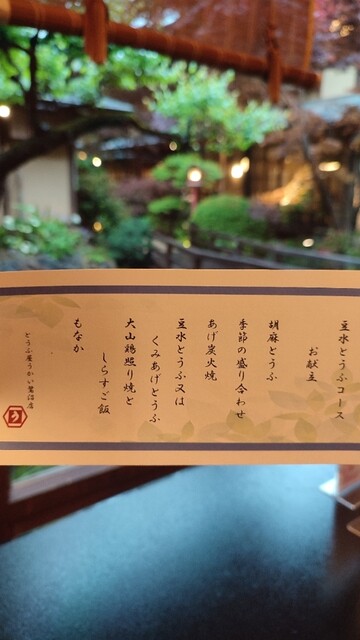 豆水とうふコース
お献立
胡麻とうふ
季節の盛り合わせ
あげ炭火焼
豆水とうふ又は
くみあげとうふ
大山鶏照り焼と
しらすご飯
もなか
とうふ屋うかい鷺沼店
う